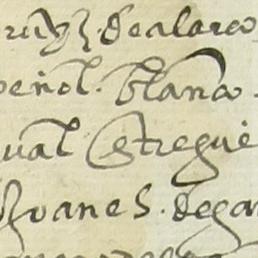 ruyz. de alarco
peñol. blanca.
ual Estregue
Joanes. de gar